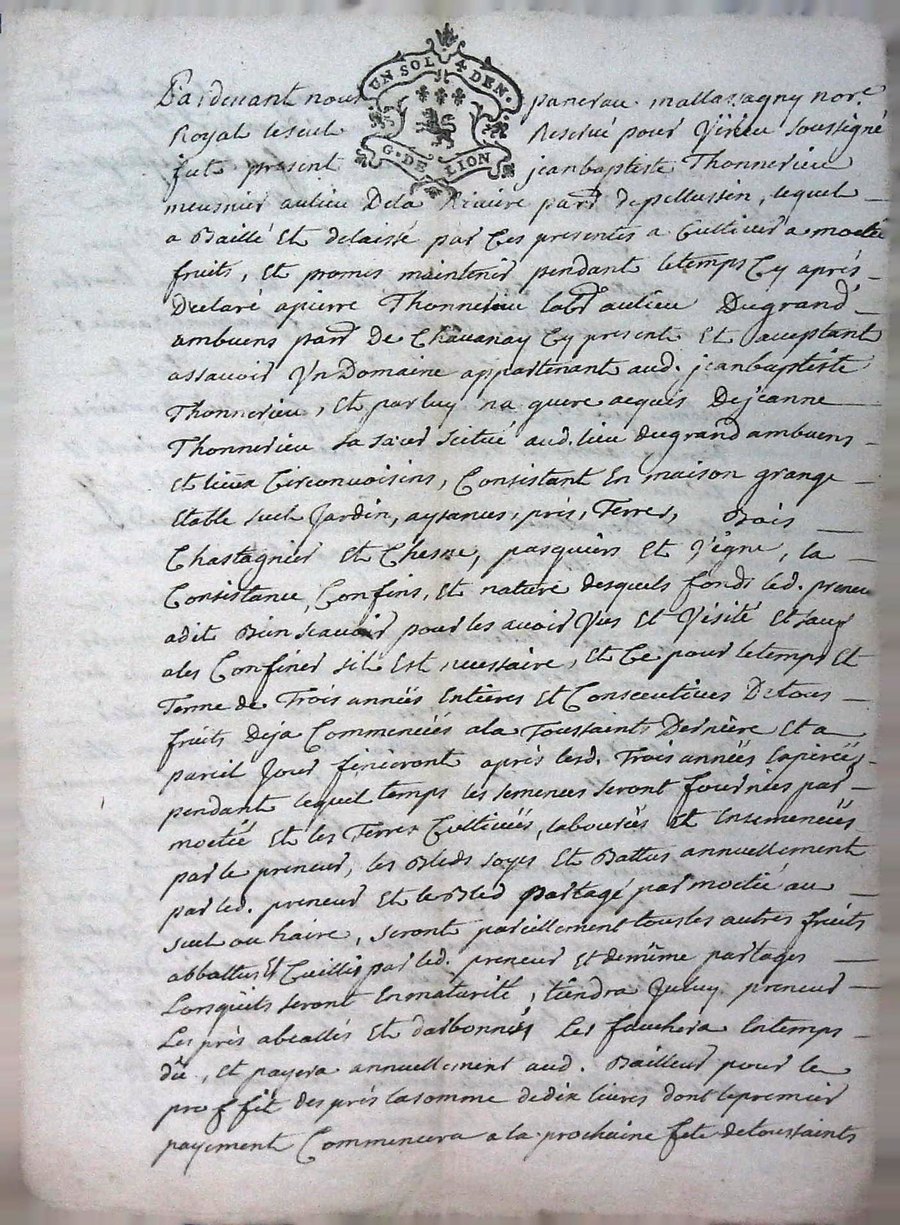 UN SOL 4 DEN.
G. DE LION
Pardevant nous pancrau mallassagny nore.
Royal le seul Reservé pour Virieu soussigné
fut present jeanbaptiste Thonnerieu
meusnier aulieu Dela Riviere parr. depellussin, lequel
a Baillé Et delaissé par Ces presentes a Cultiver a moetié
fruits, Et promes maintenir pendant letemps Cy après
Declaré apierre Thonnerieu labr. aulieu Dugrand
ambuens parr. de Chavanay Cy present Et acceptant
assavoir Yn Domaine appartenant aud. jeanbaptiste
Thonnerieu, Et par luy na guere acquis Dejeanne
Thonnerieu sa sœur scitué aud. lieu dugrand ambuens
et lieux Circonvoisins, Consistant En maison grange
Etable suel Jardin, aysances, prés, Terres, Bois
Chastagnier Et Chesne, pasquiers Et Vigne, la
Consistance, Confins, Et nature desquels fonds led. preneur
adit Bien sçavoir pour les avoir Vus Et Visité Et sauf
ales Confiner sil Est necessaire, Et Ce pour letemps Et
Terme de Trois années Entieres Et Consecutives Detous
fruits Deja Commencées ala Toussaints Derniere Et a
pareil Jour finieront après lesd. Trois années Expirées
pendant lequel temps les semences seront fournies par
moetié Et les Terres Cultivées, labourées Et Ensemencées
par le preneur, les Bleds soyes Et Battus annuellement
par led. preneur Et le Bled partagé par moetié au
suel ou haire, seront pareillement tous les autres fruits
abbattus Et Cueillis par led. preneur Et demême partages
Lorsqu'ils seront En maturité, tiendra Iceluy preneur
Les prés abeallés Et darbonnés Les fauchera Entemps
dû, Et payera annuellement aud. Bailleur pour le
proffit des prés lasomme dedix livres dont lepremier
payement Commencera a la prochaine fete detoussaints